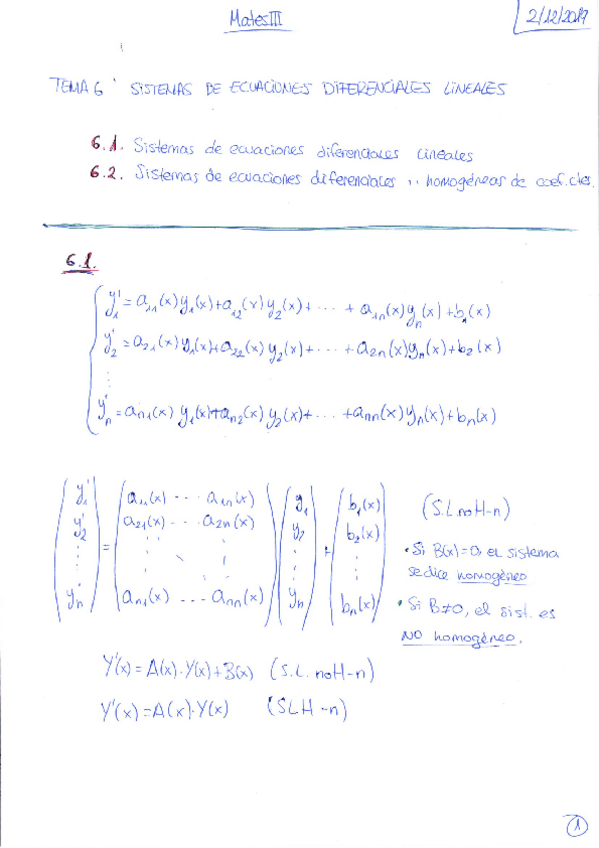 Mates III
2/12/2019
TEMA 6: SISTEMAS DE ECUACIONES DIFERENCIALES LINEALES
6.1. Sistemas de ecuaciones diferenciales lineales
6.2. Sistemas de ecuaciones diferenciales ,, homogéneas de coef. ctes.
6.1.
y₁' = a₁₁(x)y₁(x)+a₁₂(x)y₂(x)+ ··· + a₁ₙ(x)yₙ(x)+b₁(x)
y₂' = a₂₁(x)y₁(x)+a₂₂(x)y₂(x)+ ··· + a₂ₙ(x)yₙ(x)+b₂(x)
⋮
yₙ' = aₙ₁(x)y₁(x)+aₙ₂(x)y₂(x)+ ··· +aₙₙ(x)yₙ(x)+bₙ(x)
y₁' a₁₁(x) ··· a₁ₙ(x) y₁ b₁(x) (S.L.noH-n)
y₂' a₂₁(x) ··· a₂ₙ(x) y₂ b₂(x)
⋮ = ⋮ ⋱ ⋮ ⋮ + ⋮
yₙ' aₙ₁(x) ··· aₙₙ(x) yₙ bₙ(x)
• Si B(x)=0, el sistema
se dice homogéneo
• Si B≠0, el sist. es
NO homogéneo.
Y'(x) = A(x)·Y(x)+B(x) (S.L. noH-n)
Y'(x) = A(x)·Y(x) (SLH-n)
1